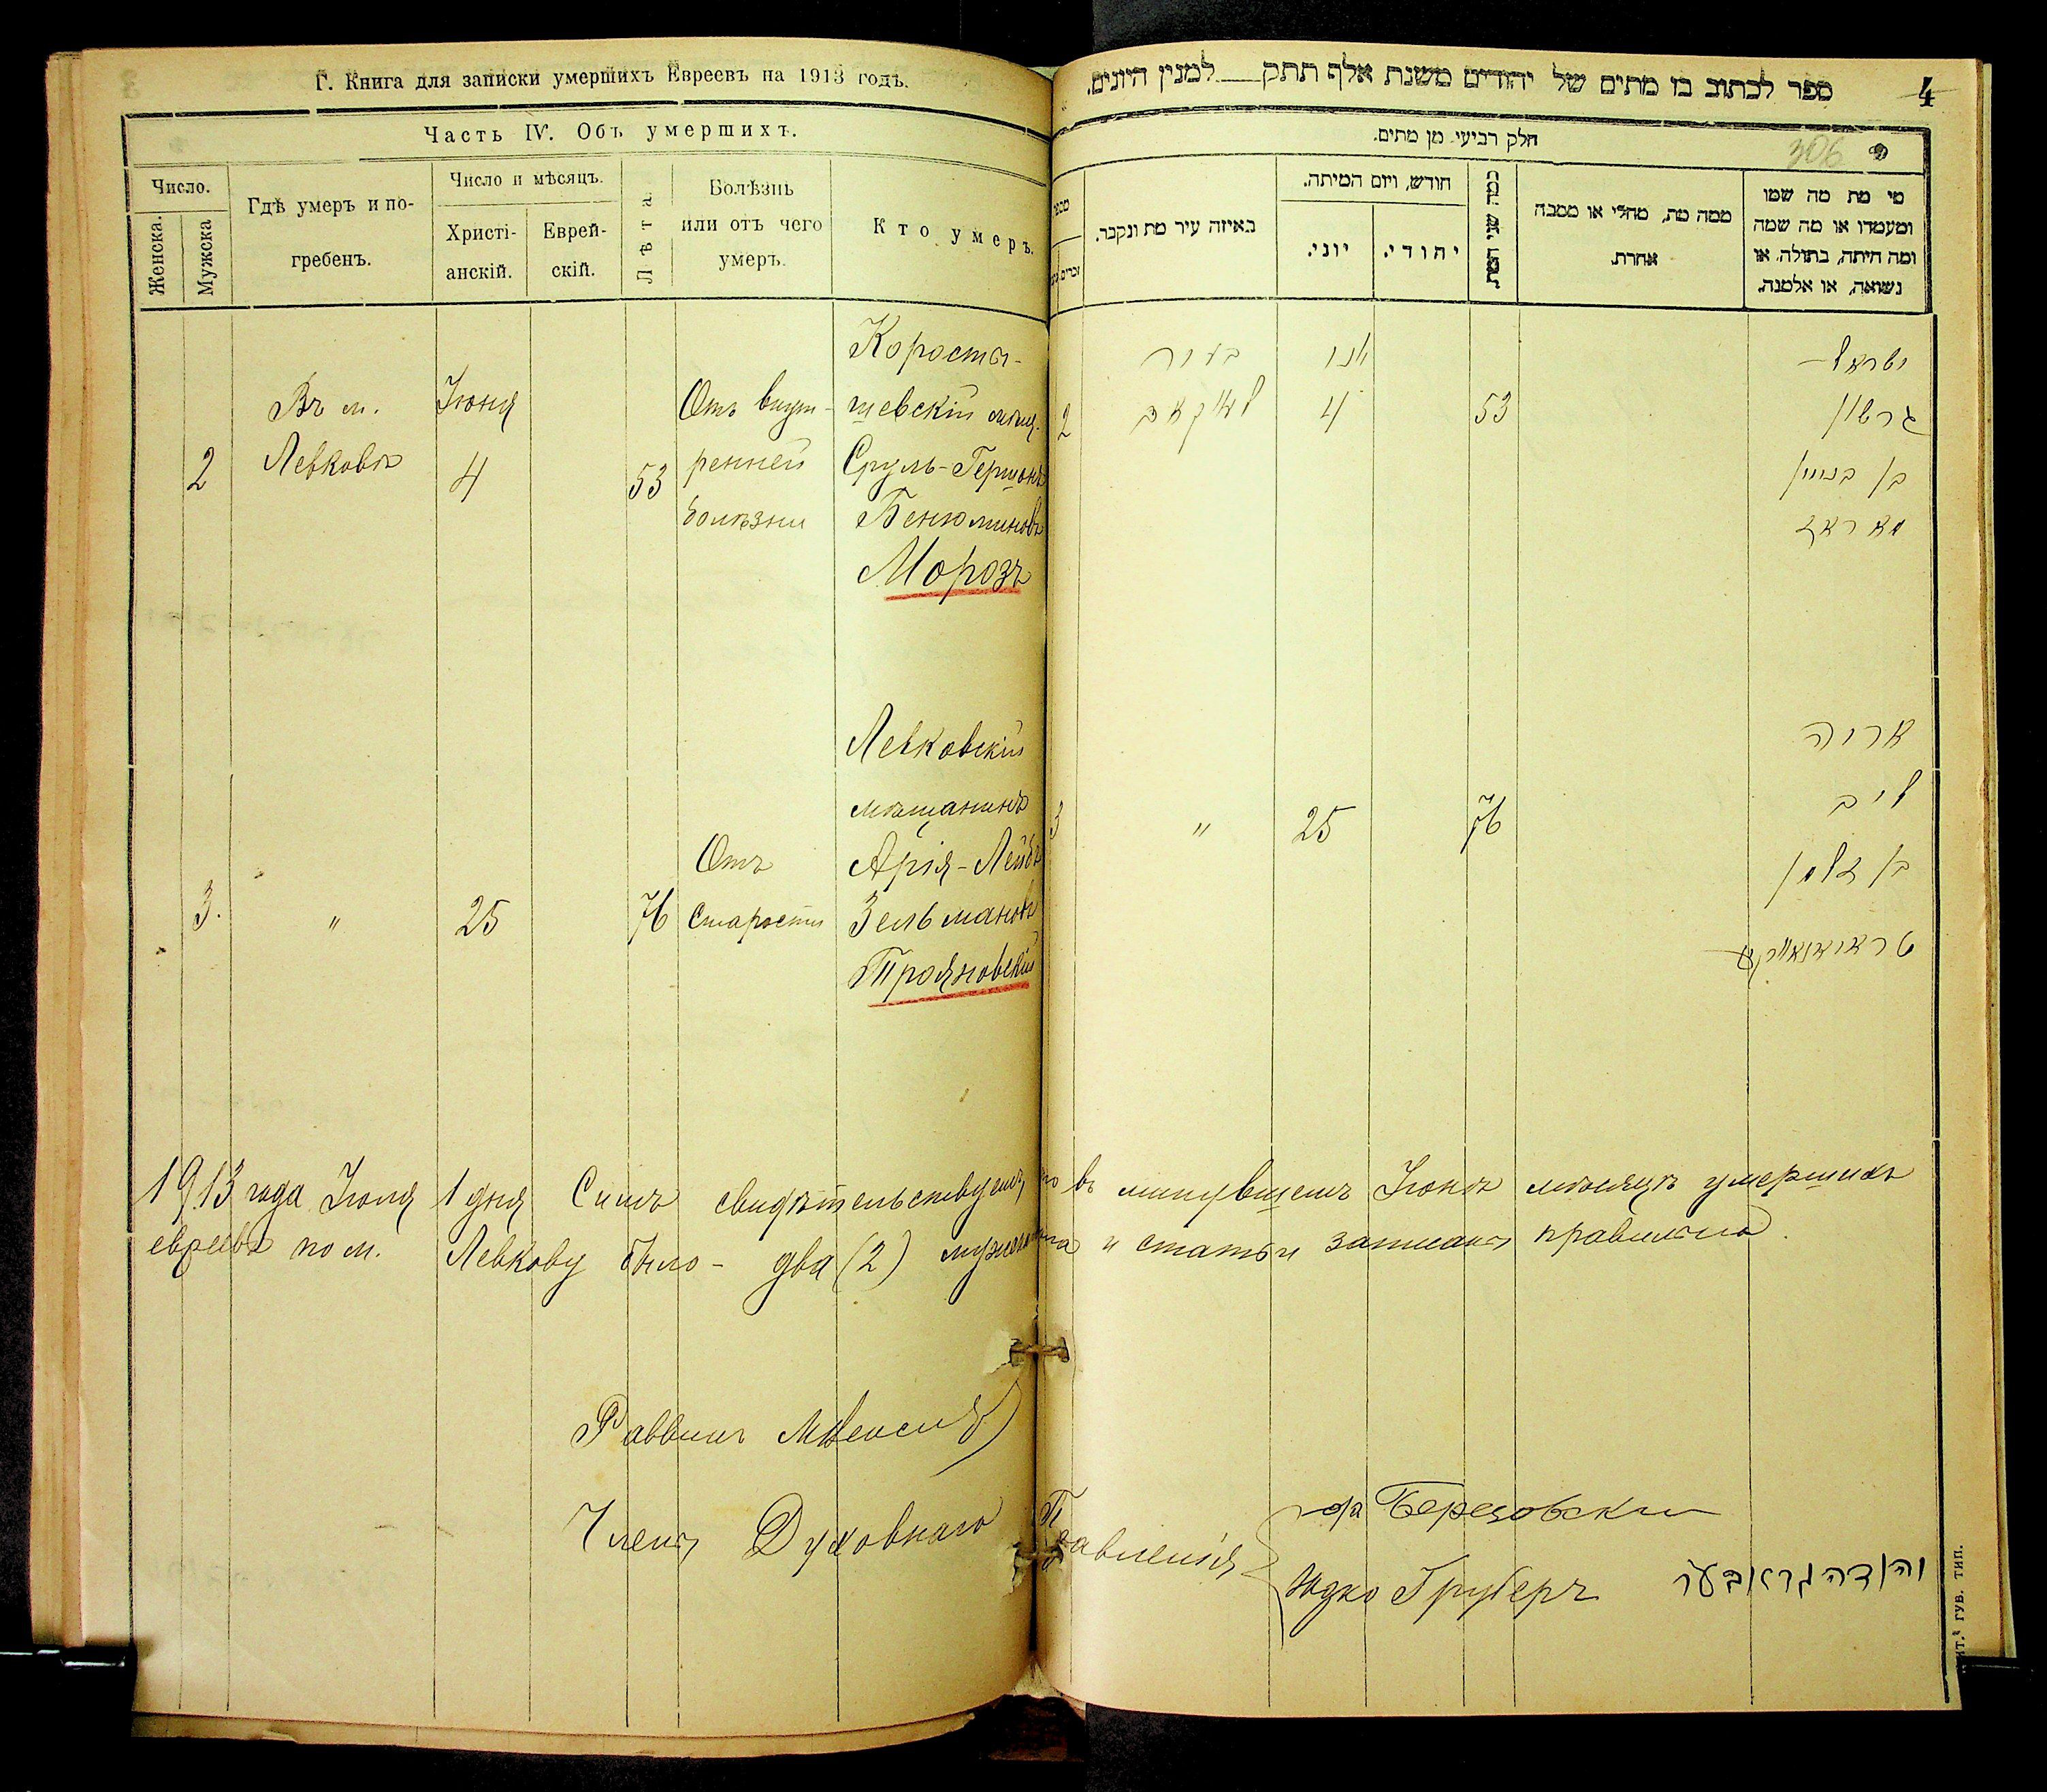 Г. Книга для записки умершихъ Евреевъ на 1913 годъ.
Часть IV. Объ умершихъ.
Число.
Женска.
Мужска
Гдѣ умеръ и по-
гребенъ.
Число и мѣсяцъ.
Христі-
анскій.
Еврей-
скій.
Лѣта
Болѣзнь
или отъ чего
умеръ.
Кто умеръ.
2
Въ м.
Левковѣ
Іюня
4
53
Отъ внут-
ренней
болѣзни
Коросты-
шевскій мѣщ.
Сруль-Гершонъ
Бенюминовъ
Морозъ
3.
"
25
76
Отъ
старости
Левковскій
мѣщанинъ
Арія-Лейбъ
Зельмановъ
Трояновскій
ספר לכתוב בו מתים של יהודים משנת אלף תתק למנין היונים.
4
306
חלק רביעי מן מתים.
באיזה עיר מת ונקבר.
חודש, ויום המיתה.
יוני.
יהודי.
כמה שני המת
ממה מת, מחלי או מסבה
אחרת.
מי מת מה שמו
ומעמדו או מה שמה
ומה היתה, בתולה או
נשואה, או אלמנה.
2
בעיר
לעווקאוו
יוני
4
53
ישראל
גרשון
בן בנימין
מאראז
3
"
25
76
אריה
ליב
בן זלמן
טראיאנאווסקי
1913 года Іюля 1 дня Симъ свидѣтельствуемъ, что въ минувшемъ Іюнѣ мѣсяцѣ умершихъ
евреевъ по м. Левкову было - два (2) мужчина и статьи записаны правильно.
Раввинъ
Члены Духовнаго Правленія
Березовскій
Юдко Груберъ
יהודה גראבער
ГУБ. ТИП.